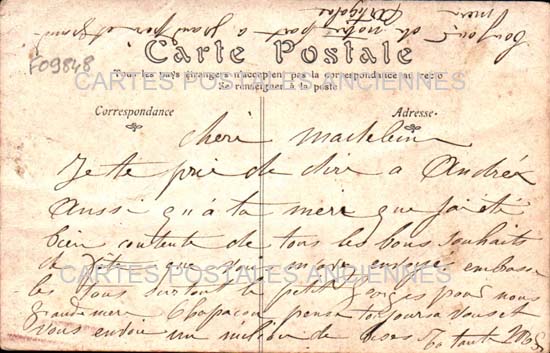 Bonjour de notre part a grand père et grand
mère
Carte Postale
F09848
Tous les pays étrangers n'acceptent pas la correspondance au recto
Se renseigner à la poste
CARTES POSTALES ANCIENNES
Correspondance
Adresse
cheri Madelein
Je te prie de dire a Andréa
Aussi qu'á ta mere que j'ai été
bien contente de tous les bons souhaits
de fête que vous envoyé embrasse
CARTES POSTALES ANCIENNES
les tous surtout le petit pour nous
grandmere pense toujours a vous et
vous envoie un million de Ta tante